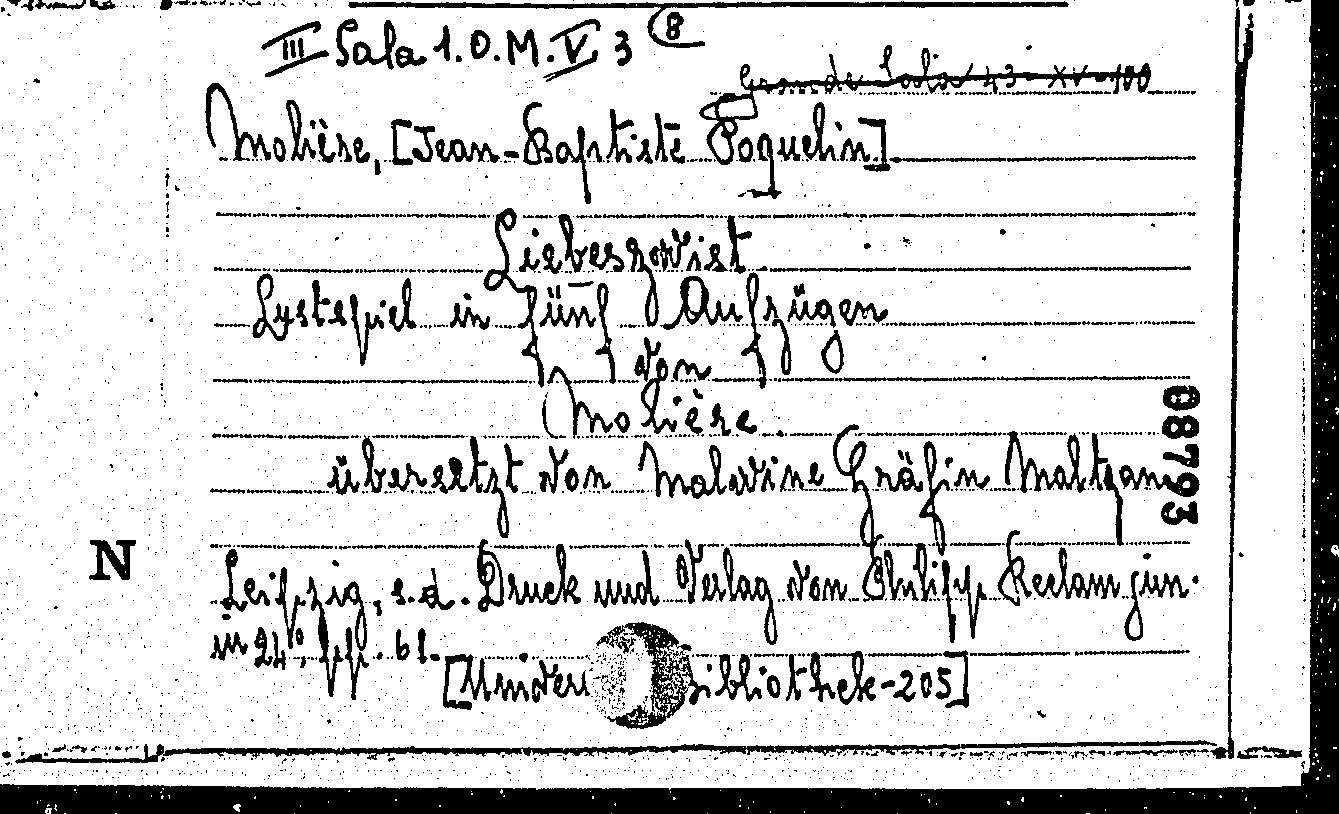 III Sala 1.O.M.V 3 (8)
Grande Sala 43-XV-100
Molière, [Jean-Baptiste Poquelin]
Liebeszwist
Lustspiel in fünf Aufzügen
von
Molière.
übersetzt von Malwine Gräfin Maltzan
08793
N
Leipzig, s.d. Druck und Verlag von Philipp Reclam jun.
in 24º, pp. 61.
[Univers ibliothek-205]